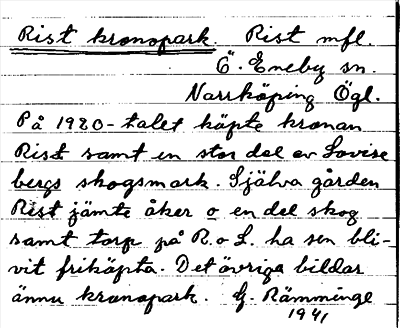 Rist kronopark. Rist mfl.
Ö. Eneby sn.
Norrköping Ögl.
På 1920-talet köpte kronan
Rist samt en stor del av Lovise
bergs skogsmark. Själva gården
Rist jämte åker o en del skog
samt torp på R. o L. ha sen bli-
vit friköpta. Det övriga bildar
ännu kronopark. G. Rämminge
1941